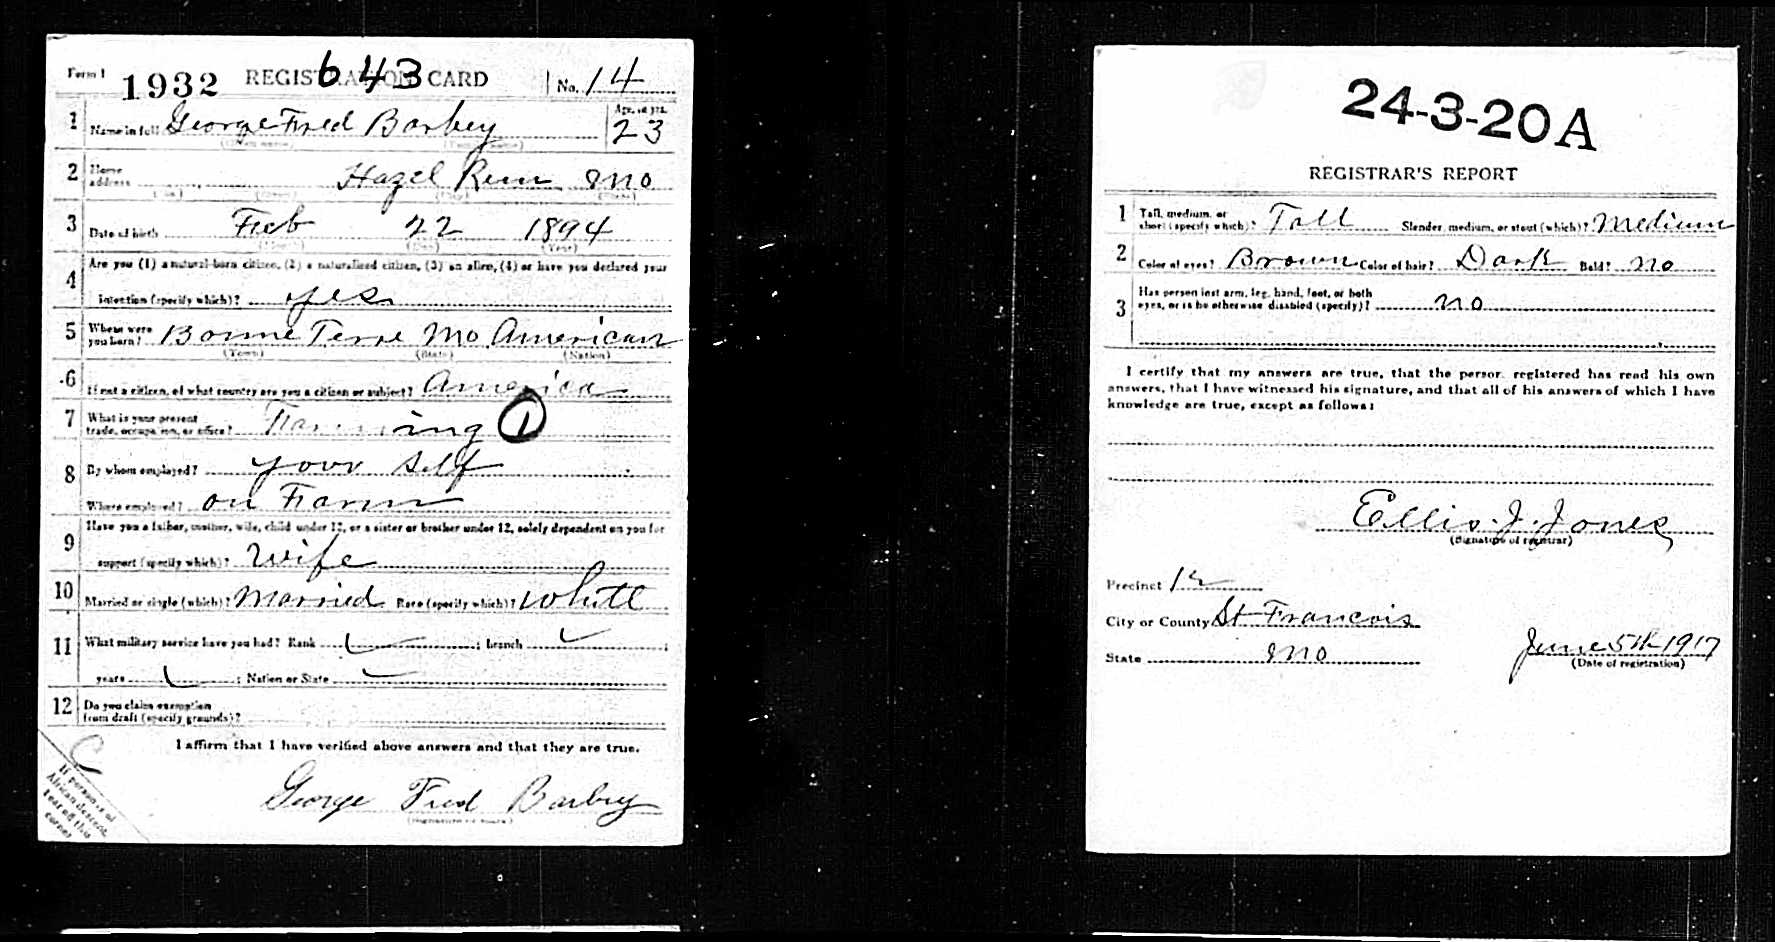 Form 1 1932 REGISTRATION CARD 643 No. 14
1 Name in full George Fred Barbey Age, in yrs. 23
(Given name) (Family name)
2 Home address Hazel Run Mo
(No.) (Street) (City) (State)
3 Date of birth Feb 22 1894
(Month) (Day) (Year)
4 Are you (1) a natural-born citizen, (2) a naturalized citizen, (3) an alien, (4) or have you declared your
intention (specify which)? yes
5 Where were you born? Bonne Terre Mo American
(Town) (State) (Nation)
6 If not a citizen, of what country are you a citizen or subject? America
7 What is your present trade, occupation, or office? Farming 1
8 By whom employed? your self
Where employed? on Farm
9 Have you a father, mother, wife, child under 12, or a sister or brother under 12, solely dependent on you for
support (specify which)? Wife
10 Married or single (which)? Married Race (specify which)? White
11 What military service have you had? Rank ; branch ;
years ; Nation or State
12 Do you claim exemption
from draft (specify grounds)?
I affirm that I have verified above answers and that they are true.
George Fred Barbey
(Signature or mark)
C
If person is of
African descent,
tear off this
corner
24-3-20 A
REGISTRAR'S REPORT
1 Tall, medium, or short (specify which)? Tall Slender, medium, or stout (which)? Medium
2 Color of eyes? Brown Color of hair? Dark Bald? no
3 Has person lost arm, leg, hand, foot, or both
eyes, or is he otherwise disabled (specify)? no
I certify that my answers are true, that the person registered has read his own
answers, that I have witnessed his signature, and that all of his answers of which I have
knowledge are true, except as follows:
Ellis J. Jones
(Signature of registrar)
Precinct 12
City or County St Francois
State Mo
June 5th 1917
(Date of registration)